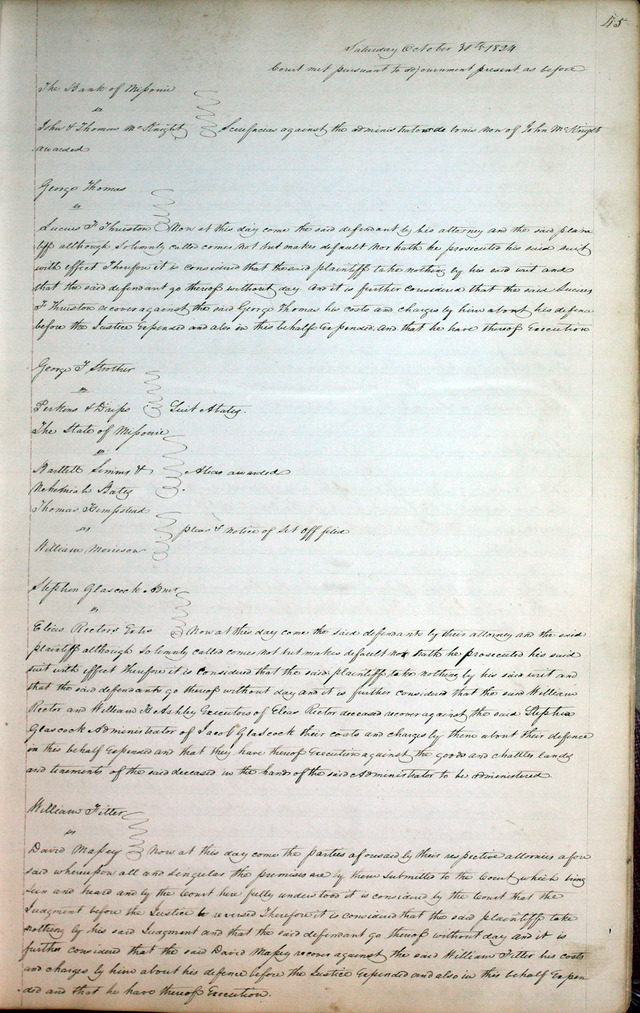 45
Saturday October 30th 1824
Court met pursuant to adjournment present as before
The Bank of Missouri
vs
John & Thomas McKnight Scirefacias against the administrator de bonis non of John McKnight
awarded
George Thomas
vs
Lucius F Thruston Now at this day come the said defendant by his attorney and the said plain
tiff although Solemnly called comes not but makes default Nor hath he prosecuted his said suit
with effect Therefore it is considered that the said plaintiff take nothing by his said writ and
that the said defendant go thereof without day And it is further considered that the said Lucius
F Thruston recover against the said George Thomas his costs and charges by him about his defence
before the Justice Expended and also in this behalf Expended And that he have thereof Execution
George F Strother
vs
Perkins & Suit Abates.
The State of Missouri
vs
Bartlett Simms & Alias awarded
Nehemiah Bates
Thomas Hempstead
vs pleas & Notice of Set off filed
William Morrison
Stephen Glascock Admr
vs
Elias Rectors Exrs Now at this day come the said defendants by their attorney and the said
plaintiff although solemnly called comes not but makes default nor hath he prosecuted his said
suit with effect therefore it is considered that the said plaintiff take nothing by his said writ and
that the said defendants go thereof without day and it is further considered that the said William
Rector and William H Ashley Executors of Elias Rector deceased recover against the said Stephen
Glascock Administrator of Jacob Glascock their costs and charges by them about their defence
in this behalf Expended and that they have thereof Execution against the goods and chattles lands
and tenements of the said deceased in the hands of the said Administrator to be administered
William Titter
vs
David Massey Now at this day come the parties aforesaid by their respective attornies afore
said whereupon all and singular the premises are by them submitted to the Court which being
seen and heard and by the Court here fully understood it is considered by the Court that the
Judgment before the Justice be reversed Therefore it is considered that the said plaintiff take
nothing by his said Judgment and that the said defendant go thereof without day and it is
further considered that the said David Massey recover against the said William Titter his costs
and charges by him about his defence before the Justice Expended and also in this behalf Expen
ded and that he have thereof Execution.